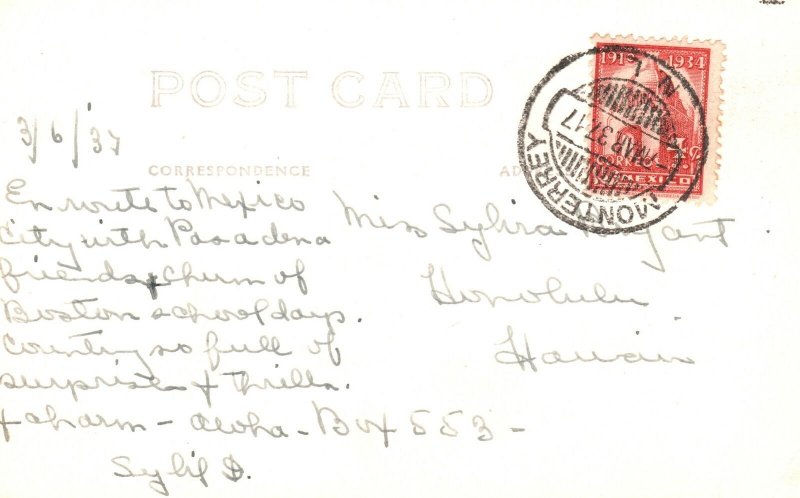 POST CARD
1910 1934
MONTERREY N. L.
7 MAR 37.17
MEXICO
3/6/'37
CORRESPONDENCE
AD
En route to Mexico
City with Pasadena
friends & chum of
Boston school days.
Country so full of
surprises & thrills.
& charm - aloha - Box 553 -
Sybil D.
Miss Sylvia
Honolulu
Hawaii